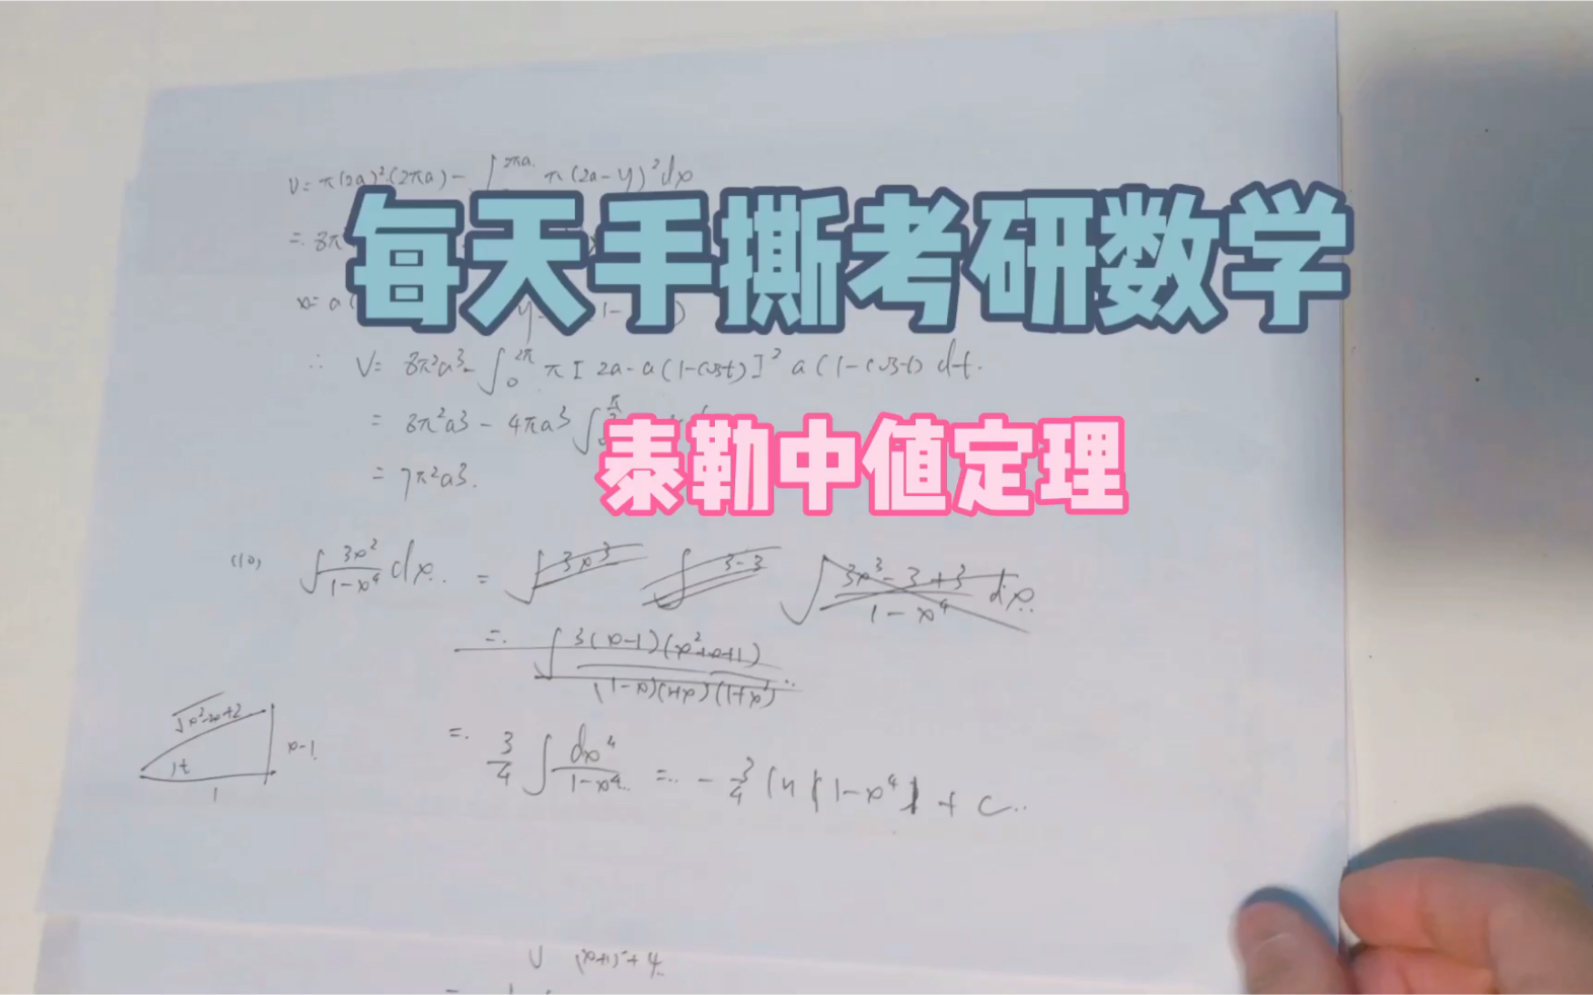 V = π(2a)²(2πa) - ∫^{2πa} π(2a-y)²dx
每天手撕考研数学
= 8π
x = a
∴ V = 8π²a³ - ∫₀^{2π} π[2a-a(1-cost)]² a(1-cost) dt.
= 8π²a³ - 4πa³ ∫
泰勒中值定理
= 7π²a³.
(10) ∫ 3x²/(1-x⁴) dx. = ∫ 3x³ ∫ 3-3 ∫ (3x³-3+3)/(1-x⁴) dx.
= ∫ 3(x-1)(x²+x+1)/((1-x)(1+x)(1+x²))
√x²-2x+2
x-1
t
1
= 3/4 ∫ dx⁴/(1-x⁴) = - 3/4 ln|1-x⁴| + C..
(x+1)²+4